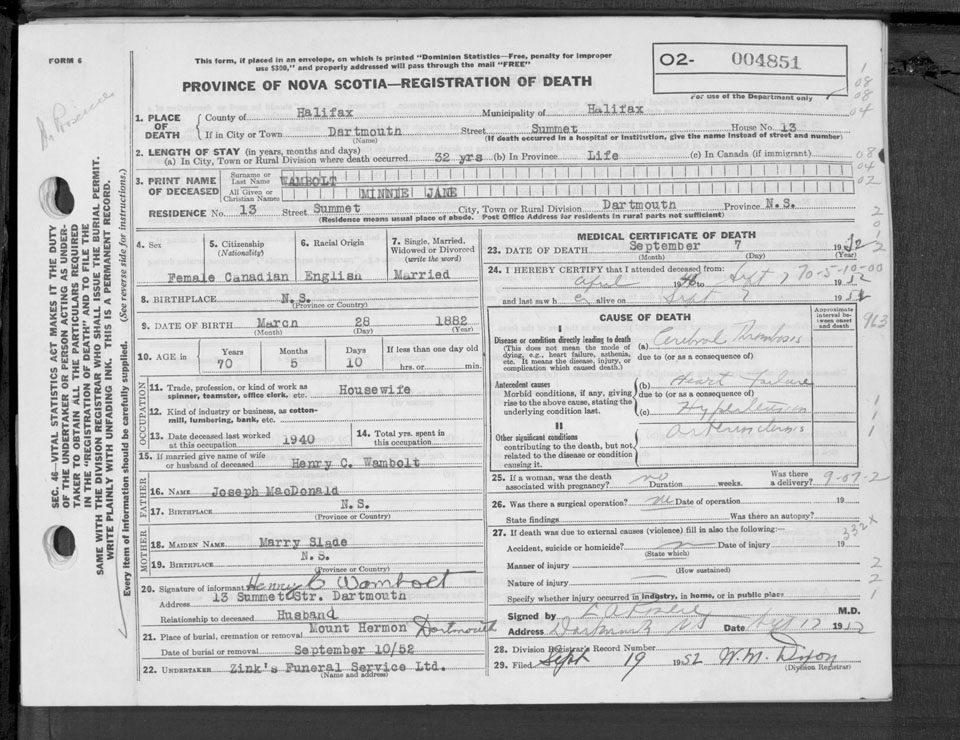 FORM 6
This form, if placed in an envelope, on which is printed "Dominion Statistics—Free, penalty for improper
use $300," and properly addressed will pass through the mail "FREE"
PROVINCE OF NOVA SCOTIA—REGISTRATION OF DEATH
O2- 004851
For use of the Department only
1. PLACE OF DEATH
County of Halifax Municipality of Halifax
If in City or Town Dartmouth Street Summet House No. 13
(Name) (If death occurred in a hospital or institution, give the name instead of street and number)
2. LENGTH OF STAY (in years, months and days)
(a) In City, Town or Rural Division where death occurred 32 yrs (b) In Province Life (c) In Canada (if immigrant)
3. PRINT NAME OF DECEASED
Surname or Last Name WAMBOLT
All Given or Christian Names MINNIE JANE
RESIDENCE No. 13 Street Summet City, Town or Rural Division Dartmouth Province N.S.
(Residence means usual place of abode. Post Office Address for residents in rural parts not sufficient)
4. Sex Female
5. Citizenship (Nationality) Canadian
6. Racial Origin English
7. Single, Married, Widowed or Divorced (write the word) Married
8. BIRTHPLACE N.S.
(Province or Country)
9. DATE OF BIRTH March 28 1882
(Month) (Day) (Year)
10. AGE in Years 70 Months 5 Days 10 If less than one day old hrs. or min.
OCCUPATION
11. Trade, profession, or kind of work as spinner, teamster, office clerk, etc. Housewife
12. Kind of industry or business, as cotton-mill, lumbering, bank, etc.
13. Date deceased last worked at this occupation 1940
14. Total yrs. spent in this occupation
15. If married give name of wife or husband of deceased Henry C. Wambolt
FATHER
16. NAME Joseph MacDonald
17. BIRTHPLACE N.S.
(Province or Country)
MOTHER
18. MAIDEN NAME Marry Slade
19. BIRTHPLACE N.S.
(Province or Country)
20. Signature of informant Henry C Wambolt
Address 13 Summet Str. Dartmouth
Relationship to deceased Husband
21. Place of burial, cremation or removal Mount Hermon Dartmouth
Date of burial or removal September 10/52
22. UNDERTAKER Zink's Funeral Service Ltd.
(Name and address)
MEDICAL CERTIFICATE OF DEATH
23. DATE OF DEATH September 7 1952
(Month) (Day) (Year)
24. I HEREBY CERTIFY that I attended deceased from:
April 19 to Sept 7 1952
and last saw h er alive on Sept 7 1952
70-5-10-00
CAUSE OF DEATH
Approximate interval between onset and death
I
Disease or condition directly leading to death
(This does not mean the mode of dying, e.g., heart failure, asthenia, etc. It means the disease, injury, or complication which caused death.)
(a) Cerebral Thrombosis
due to (or as a consequence of)
Antecedent causes
Morbid conditions, if any, giving rise to the above cause, stating the underlying condition last.
(b) Heart Failure
due to (or as a consequence of)
(c) Hypertension
II
Other significant conditions
contributing to the death, but not related to the disease or condition causing it.
arteriosclerosis
25. If a woman, was the death associated with pregnancy? no Duration weeks. Was there a delivery?
9-07-2
26. Was there a surgical operation? no Date of operation 19
State findings Was there an autopsy?
27. If death was due to external causes (violence) fill in also the following:—
Accident, suicide or homicide? Date of injury 19
(State which)
332X
Manner of injury
(How sustained)
Nature of injury
Specify whether injury occurred in industry, in home, or in public place
Signed by M.D.
Address Dartmouth NS Date Sept 17 1952
28. Division Registrar's Record Number
29. Filed Sept 19 1952 W.M. Dixon
(Division Registrar)
SEC. 46—VITAL STATISTICS ACT MAKES IT THE DUTY
OF THE UNDERTAKER OR PERSON ACTING AS UNDER-
TAKER TO OBTAIN ALL THE PARTICULARS REQUIRED
IN THE "REGISTRATION OF DEATH" AND TO FILE THE
SAME WITH THE DIVISION REGISTRAR WHO SHALL ISSUE THE BURIAL PERMIT.
WRITE PLAINLY WITH UNFADING INK. THIS IS A PERMANENT RECORD.
Every item of information should be carefully supplied. (See reverse side for instructions.)